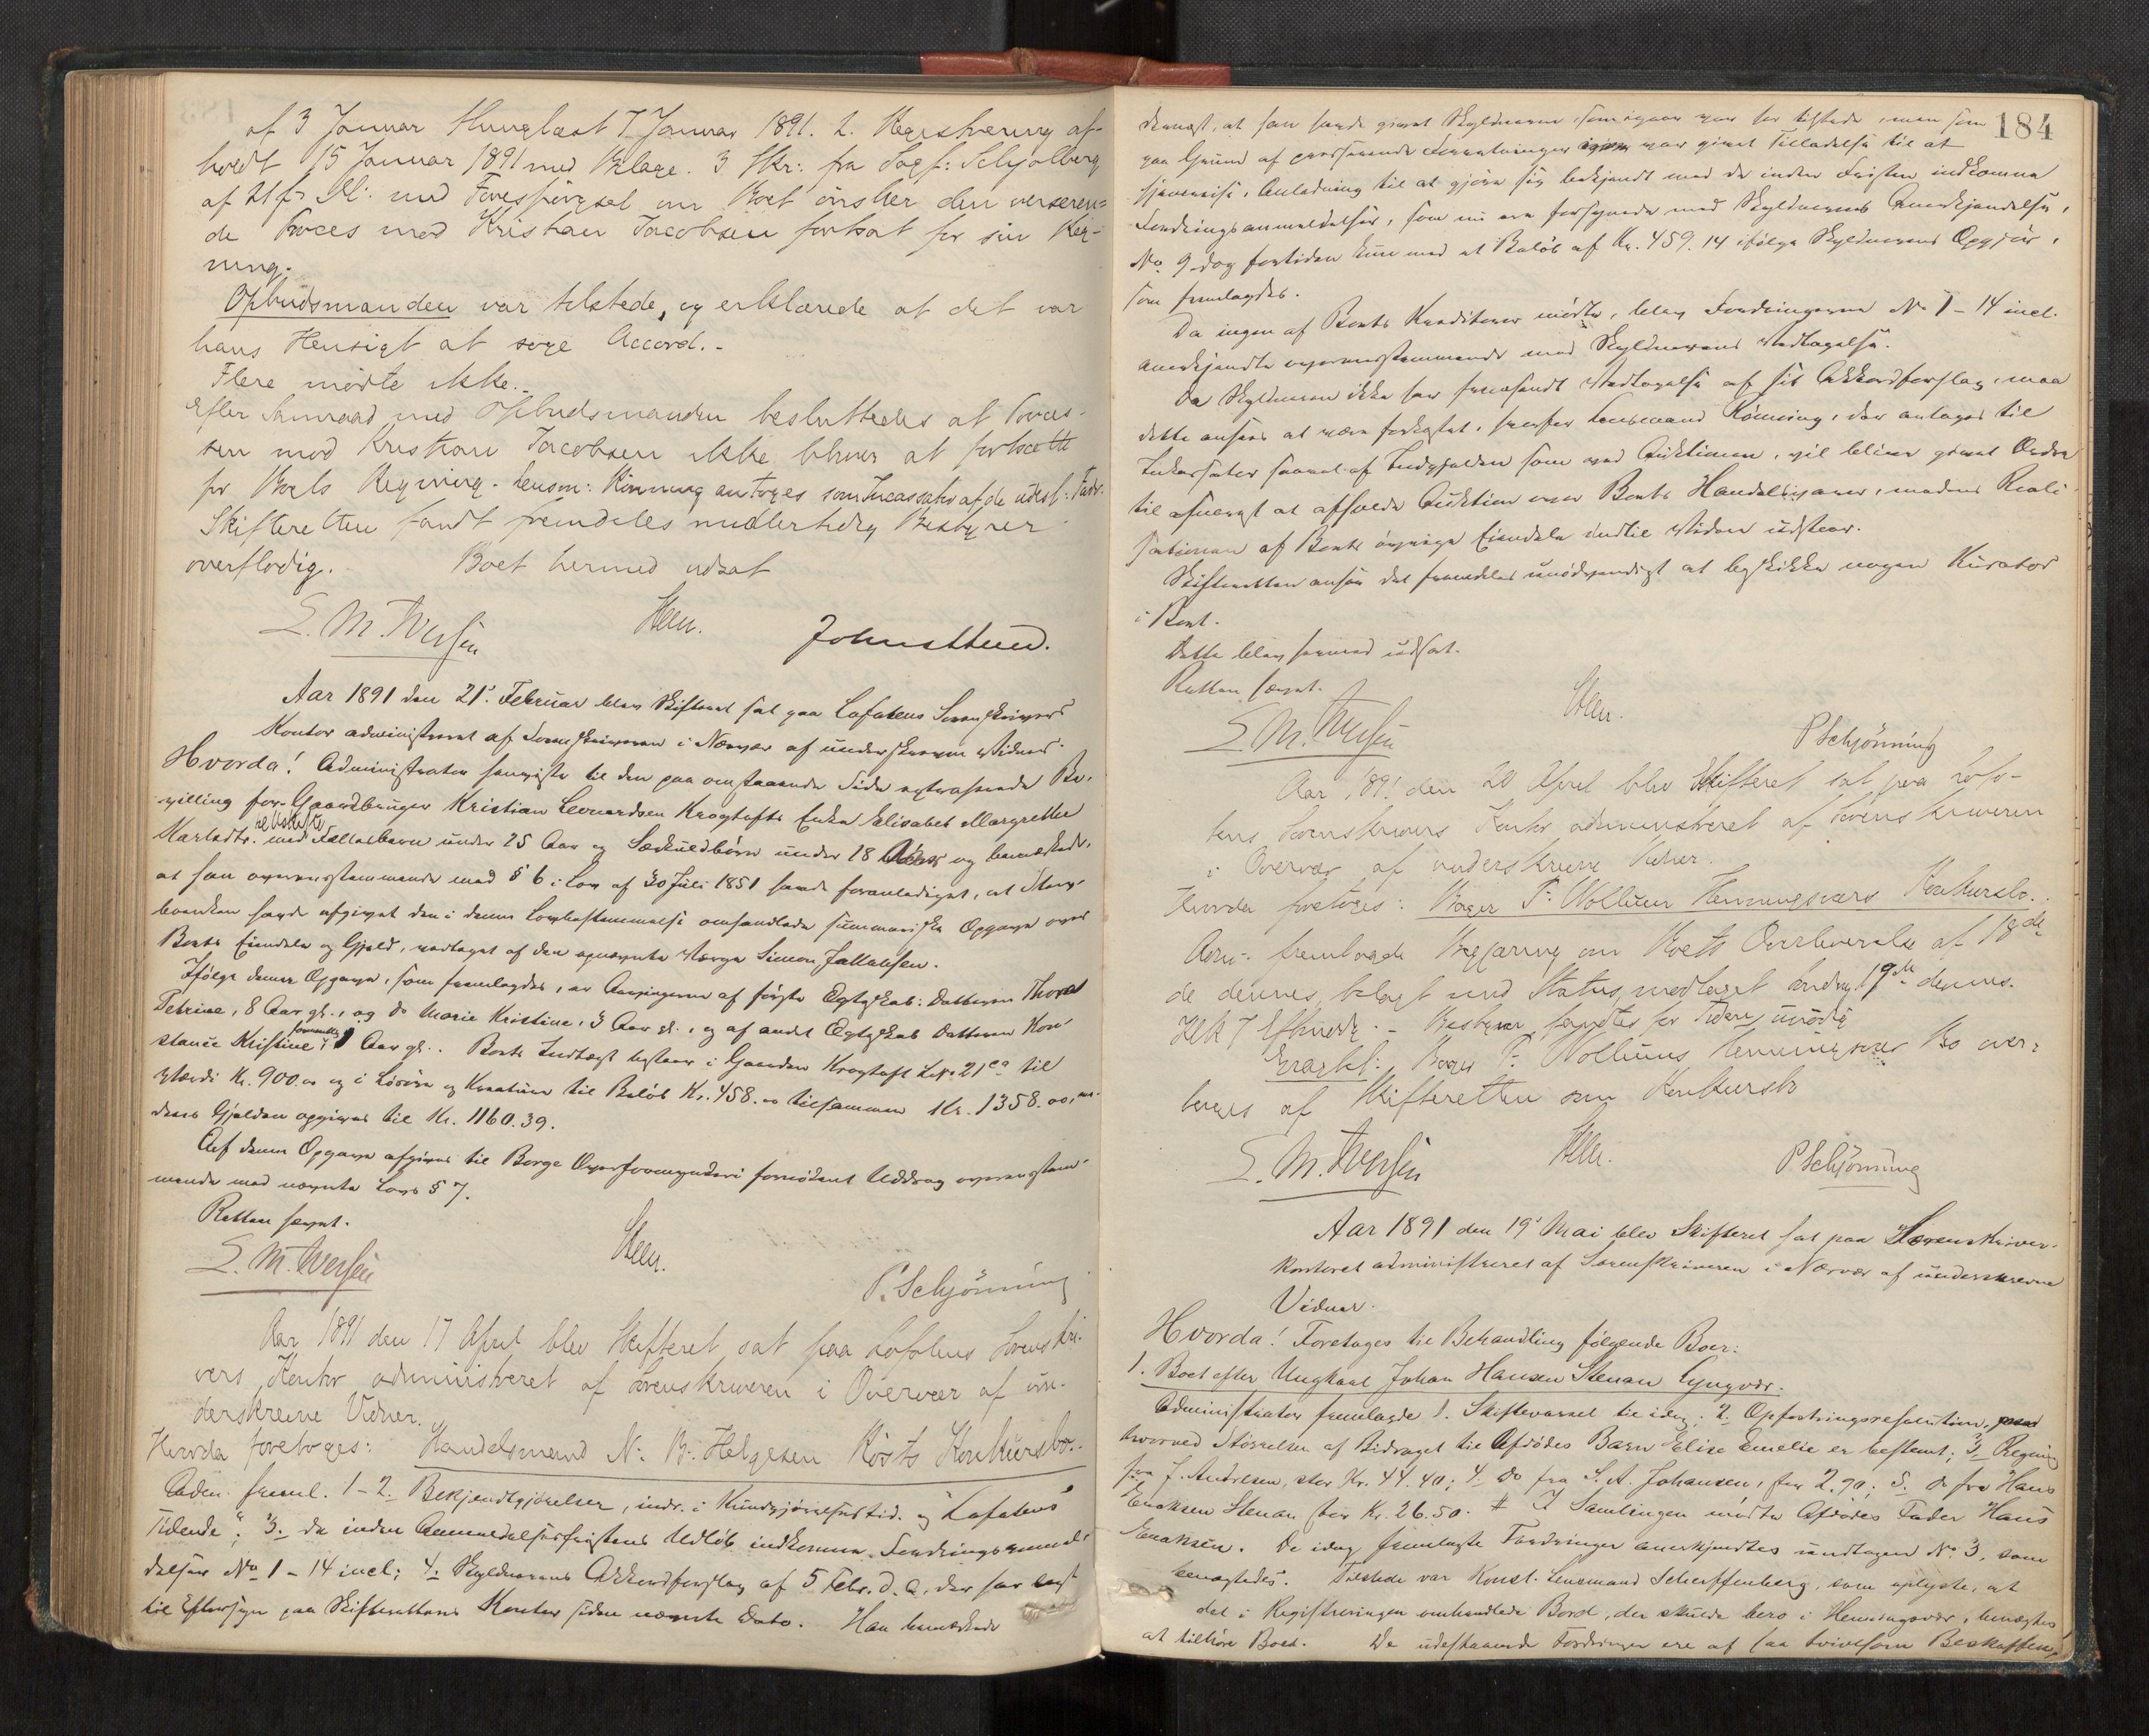 af 3 Januar thinglæst 7 Januar 1891. 2. Registrering af-
holdt 15 Januar 1891 med Bilage. 3 Skr: fra Sagf: Schjølberg
af 21 f. M: med Forespørgsel om Boet ønsker den verseren-
de Proces mod Kristian Jacobsen fortsat for sin Reg-
ning.
Opbudsmanden var tilstede, og erklærede at det var
hans Hensigt at søge Accord.-
Flere mødte ikke.-
Efter Samraad med Opbudsmanden besluttedes at Proces-
sen mod Kristian Jacobsen ikke bliver at fortsætte
for Boets Regning. Lensm: Rønning antoges som Incassator af de udest: Fordr:
Skifteretten fandt fremdeles midlertidig Bestyrer
overflødig. Boet hermed udsat
E. M. Iversen Steen. Johnsthun.
Aar 1891 den 21' Februar blev Skifteret sat paa Lofotens Sorenskrivers
Kontor administreret af Sorenskriveren i Nærvær af underskrevne Vidner.
Hvorda! Administrator henviste til den paa omstaaende Side extraherede Be-
villing for Gaardbruger Kristian Leonardsen Krogtofts Enke Elisabet Margrethe
Karlsdtr. med Fællesbørn under 25 Aar og Særkuldbørn under 18 Aar og bemærkede,
at han overensstemmende med § 6 i Lov af 30 Juli 1851 havde foranlediget, at Sterv-
boenken havde afgivet den i denne Lovbestemmelse omhandlede summariske Opgave over
Boets Eiendele og Gjæld, vedtaget af den opnævnte Værge Simon Jakobsen.
Ifølge denne Opgave, som fremlagdes, er Arvingerne af første Ægteskab: Datteren Thora
Petrine, 8 Aar gl., og do Marie Kristine, 3 Aar gl., og af andet Ægteskab Datteren Kon-
stance Kristine, 1 Aar gl.. Boets Indtægt bestaar i Gaarden Krogtoft Lnr 21 ca til
Værdi Kr. 900.00 og i Løsøre og Kreaturer til Beløb Kr. 458.00 tilsammen Kr. 1358.00, me-
dens Gjælden opgives til Kr. 1160.39.
Af denne Opgave afgives til Borge Overformynderi fornødent Uddrag overensstem-
mende med nævnte Lovs § 7.
Retten hævet.
E. M. Iversen Steen. P. Schjønning
Aar 1891 den 17 April blev Skifteret sat paa Lofotens Sorenskri-
vers Kontor administreret af Sorenskriveren i Overvær af un-
derskrevne Vidner.
Hvorda foretoges: Handelsmand N. B. Helgesen Røsts Konkursbo.
Adm. freml. 1-2. Bekjendtgjørelser, indr. i Kundgjørelsestid. og "Lofotens
Tidende"; 3. de inden Anmeldelsesfristens Udløb indkomne Fordringsanmel-
delser No 1 - 14 incl; 4. Skyldnerens Akkordforslag af 5 Febr. d. A. der har lagt
til Eftersyn paa Skifterettens Kontor siden nævnte Dato. Han bemærkede
184
dernæst, at han havde givet Skyldneren, som igaar var her tilstede, men som
paa Grund af presserende Forretninger var givet Tilladelse til at
hjemreise, Anledning til at gjøre sig bekjendt med de inden Fristen indkomne
Fordringsanmeldelser, som nu ere forsynede med Skyldnerens Anerkjendelse,
No 9 dog fortiden kun med et Beløb af Kr. 459.14 ifølge Skyldnerens Opgjør,
som fremlagdes.
Da ingen af Boets Kreditorer mødte, blev Fordringerne No 1 - 14 incl.
anerkjendte overensstemmende med Skyldnerens Vedtagelse.
Da Skyldneren ikke har fremsendt Vedtagelse af sit Akkordforslag, maa
dette ansees at være forkastet, hvorfor Lensmand Rønning, der antages til
Inkassator saavel af Indgjælden som ved Auktionen, vil blive givet Ordre
til ufortøvet at afholde Auktion over Boets Handelsvarer, medens Reali-
sationen af Boets øvrige Eiendele indtil Videre udstaar.
Skifteretten ansaa det fremdeles unødvendigt at beskikke nogen Kurator
i Boet.
Dette blev hermed udsat.
Retten hævet.
E. M. Iversen Steen. P Schjønning
Aar 1891 den 20 April blev Skifteret sat paa Lofo-
tens Sorenskrivers Kontor administreret af Sorenskriveren
i Overvær af underskrevne Vidner.
Hvorda foretoges: Bager P. Wollums Henningsværs Konkursbo.
Adm. fremlagde Begjæring om Boets Overleverelse af 18de
de dennes, belagt med Status, modtaget 19de dennes.
Klk 7 Efterm. - Bestyrer fandtes for Tiden unødig
Eragtet: Bager P. Wollums Henningsvær Bo over-
tages af Skifteretten som Konkursbo
E. M. Iversen Steen. P Schjønning
Aar 1891 den 19' Mai blev Skifteret sat paa Sorenskriver-
kontoret administreret af Sorenskriveren i Nærvær af underskrevne
Vidner.
Hvorda! Foretoges til Behandling følgende Boer:
1. Boet efter Ungkarl Johan Hansen Stenan Lyngvær.
Administrator fremlagde 1. Skiftevarsel til idag; 2. Opfostringsresolution,
hvorved Størrelsen af Bidraget til Afdødes Barn Elise Emelie er bestemt; 3. Regning
fra J. Andresen, stor Kr. 44.40; 4. Do fra S. A. Johansen, stor 2.90; 5. do fra Hans
Enoksen Stenan stor Kr. 26.50. I Samlingen mødte Afdødes Fader Hans
Enoksen. De idag fremlagte Fordringer anerkjendtes undtagen No 3, som
benægtedes. Tilstede var Konst. Lensmand Scheffenberg, som oplyste, at
det i Registreringen omhandlede Bord, der skulde bero i Henningsvær, benægtes
at tilhøre Boet. De udestaaende Fordringer ere af saa tvivlsom Beskaffen-